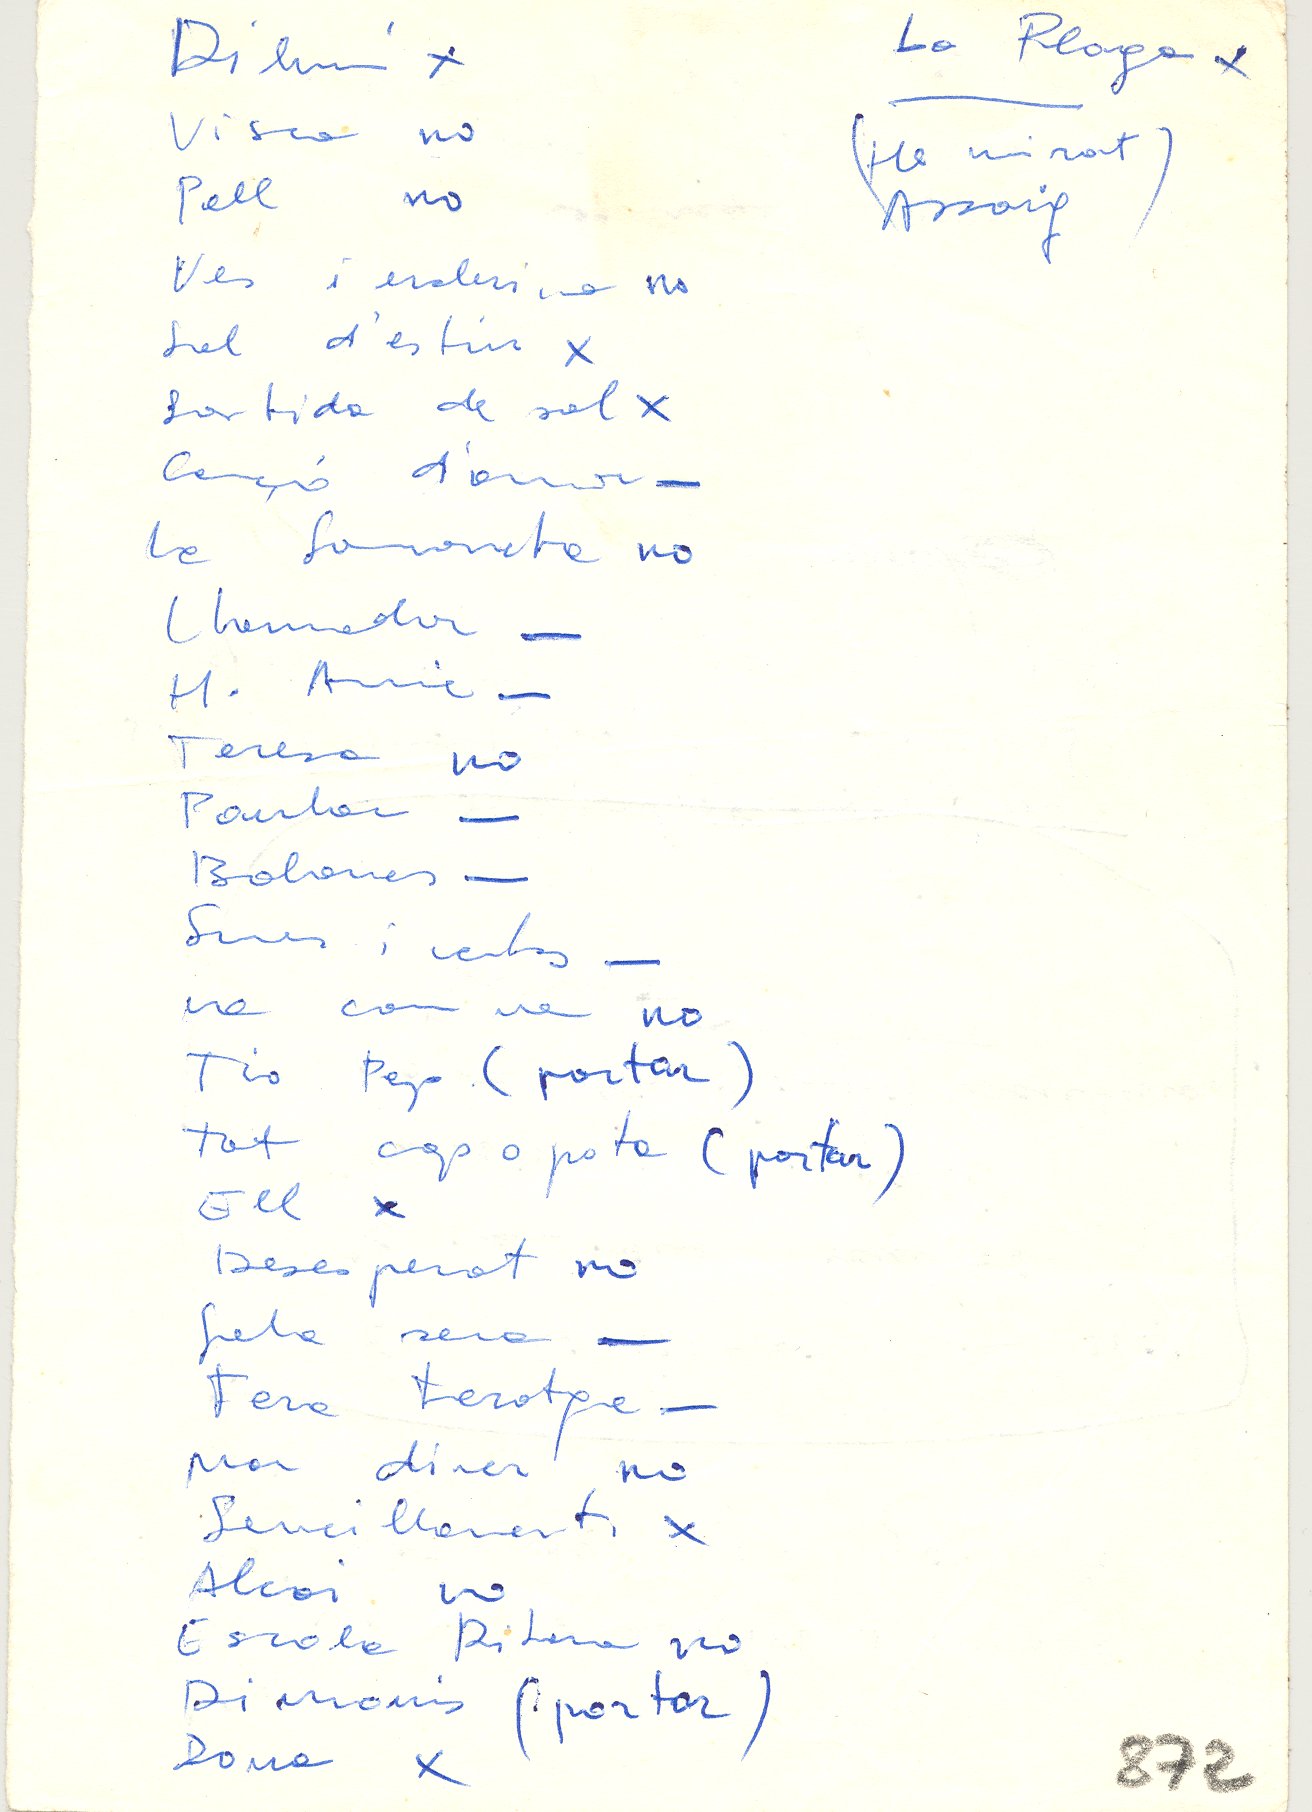 Dilluns x
Visca no
Pell no
Ves i endevina no
Sol d'estiu x
Sortida de sol x
Cançó d'amor —
La Samarreta no
L'hamador —
H. Annie —
Teresa no
Parlar —
Balances —
i verbs —
va com va no
Tio Pep (portar)
tot cap o pota (portar)
Ell x
Desesperat no
sera —
Fera Ferotge —
Mar diner no
Senzillament x
Alcoi no
Escola Ribera no
Dimonis (portar)
Dona x
La Plaga x
(He mirat)
Assaig
872